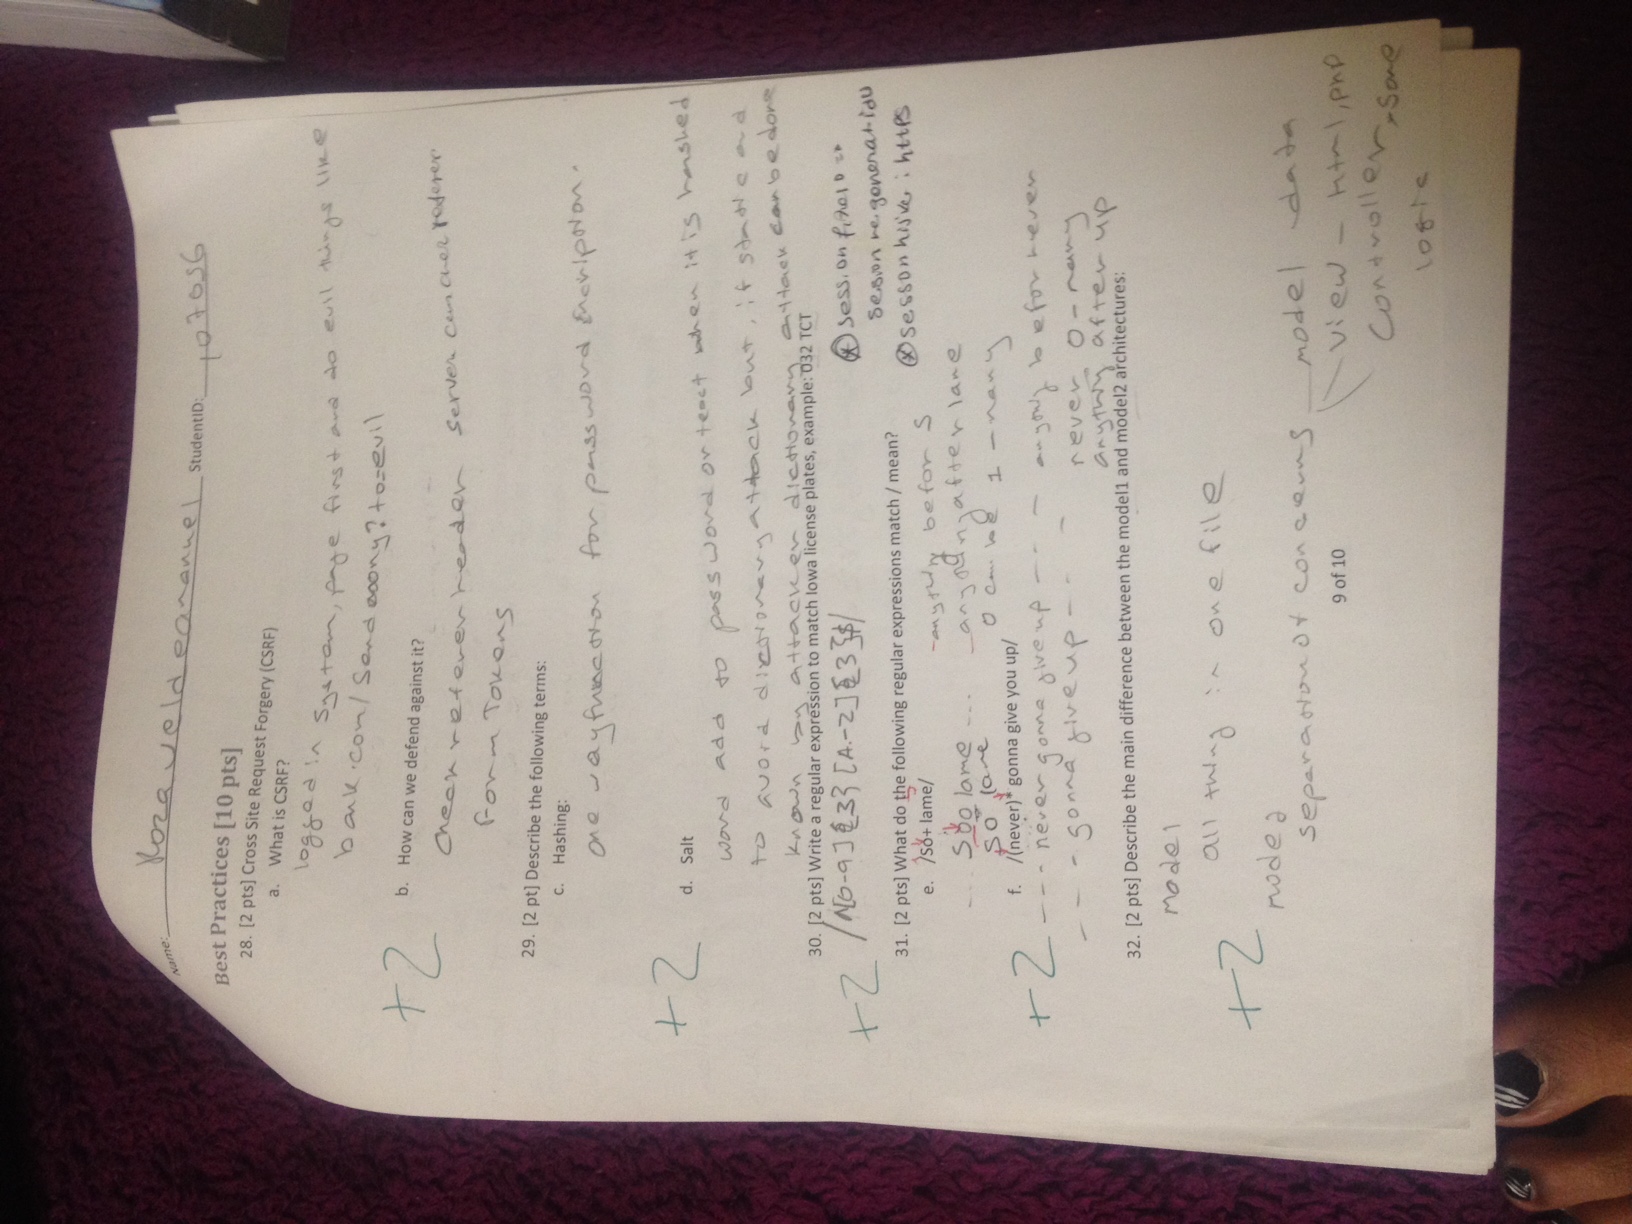 Name: StudentID: 107056
Best Practices [10 pts]
28. [2 pts] Cross Site Request Forgery (CSRF)
a. What is CSRF?
logged in system, page first and do evil things like
bank.com/ to=evil
+2
b. How can we defend against it?
check referer header server can referer
Form Tokens
29. [2 pt] Describe the following terms:
c. Hashing:
one way function for password
+2
d. Salt
word add to password or when it is hashed
to avord dictionary attack but, if static and
known by attacker dictionary attack can be done
30. [2 pts] Write a regular expression to match Iowa license plates, example: 032 TCT
+2 /^[0-9]{3} [A-Z]{3}$/
⊛ session
session regeneration
31. [2 pts] What do the following regular expressions match / mean?
⊛ : https
e. /So+ lame/
- anything befor S
... Soo lame ... - anything after lame
So lame o can be 1 - many
f. /(never)* gonna give you up/
+2 --- never gonna give up --- anything befor never
--- gonna give up --- never 0 - many
anything after up
32. [2 pts] Describe the main difference between the model1 and model2 architectures:
model
all thing in one file
+2
mode2
separation of concerns model data
View - html, php
9 of 10
Controller - some
logic